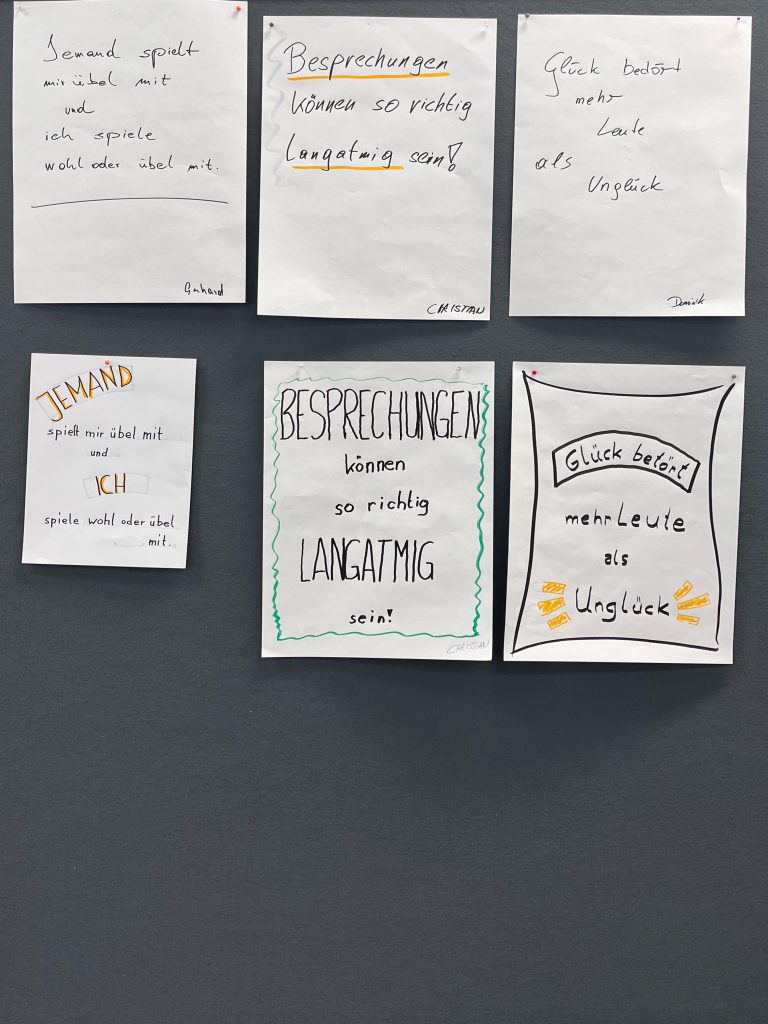 Jemand spielt
mir übel mit
und
ich spiele
wohl oder übel mit.
Gerhard
Besprechungen
können so richtig
Langatmig sein!
CHRISTIAN
Glück betört
mehr
Leute
als
Unglück
Dominik
JEMAND
spielt mir übel mit
und
ICH
spiele wohl oder übel
mit.
BESPRECHUNGEN
können
so richtig
LANGATMIG
sein!
CHRISTIAN
Glück betört
mehr Leute
als
Unglück